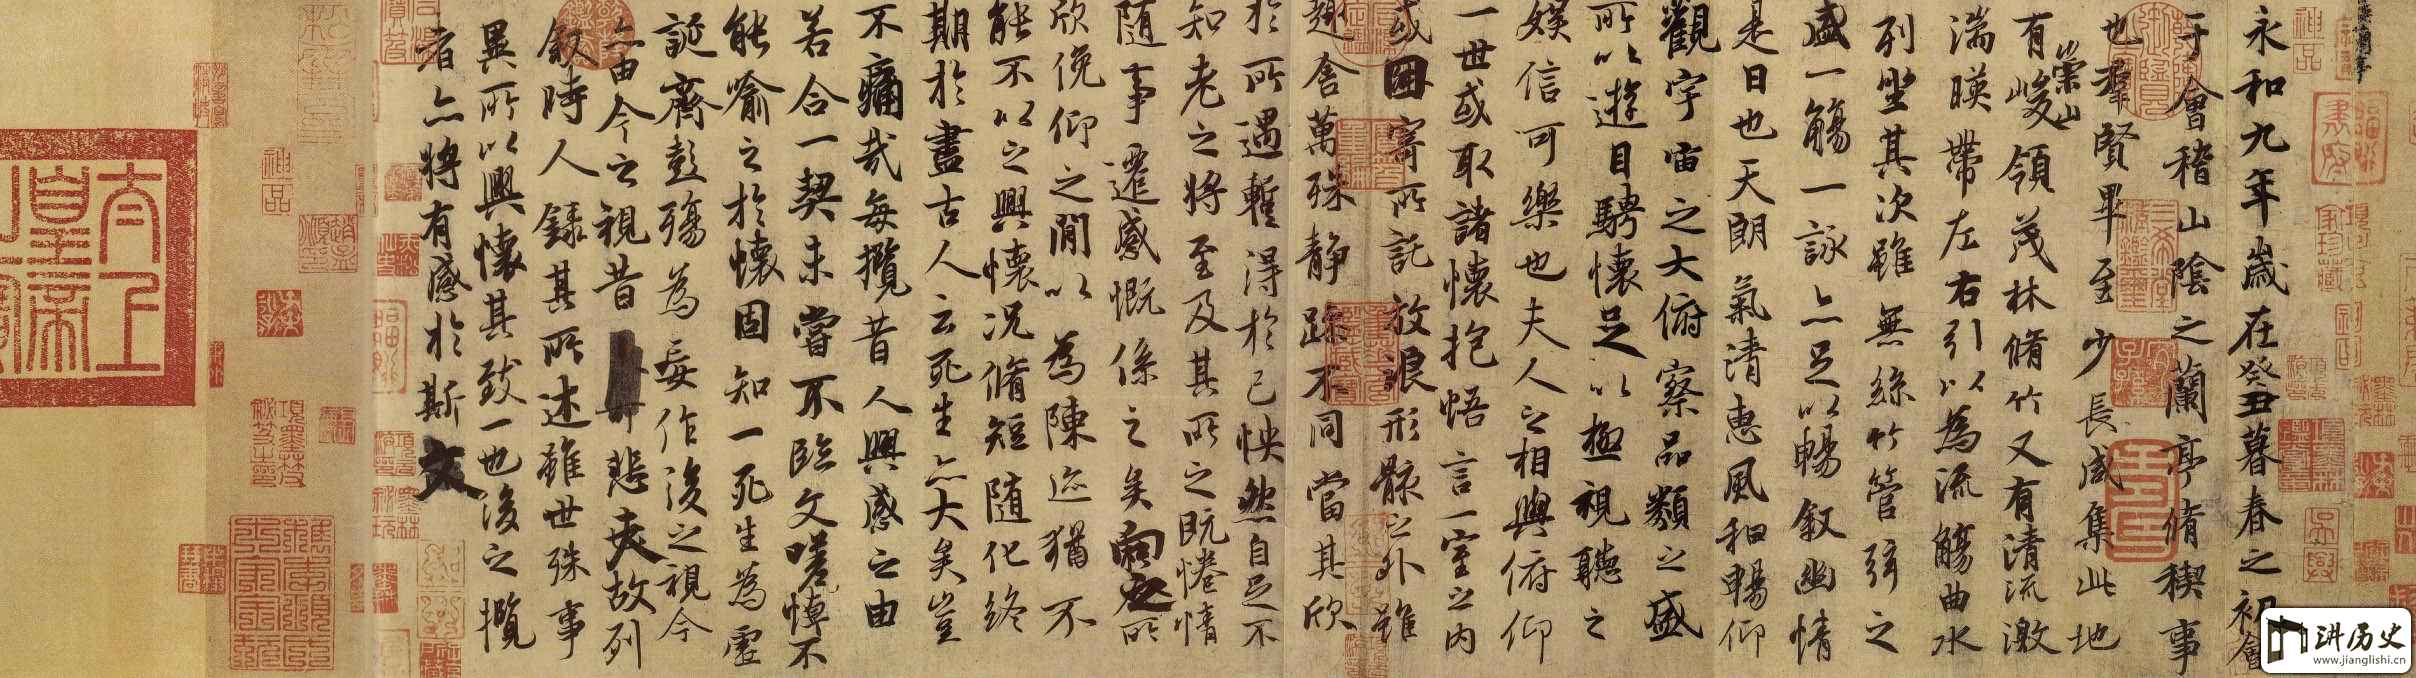 永和九年歲在癸丑暮春之初會
于會稽山陰之蘭亭脩稧事
也羣賢畢至少長咸集此地
有崇山峻領茂林脩竹又有清流激
湍暎帶左右引以為流觴曲水
列坐其次雖無絲竹管弦之
盛一觴一詠亦足以暢叙幽情
是日也天朗氣清惠風和暢仰
觀宇宙之大俯察品類之盛
所以遊目騁懷足以極視聽之
娛信可樂也夫人之相與俯仰
一世或取諸懷抱悟言一室之內
或因寄所託放浪形骸之外雖
趣舍萬殊靜躁不同當其欣
於所遇蹔得於己怏然自足不
知老之將至及其所之既惓情
隨事遷感慨係之矣向之所
欣俛仰之閒以為陳迹猶不
能不以之興懷況脩短隨化終
期於盡古人云死生亦大矣豈
不痛哉每攬昔人興感之由
若合一契未嘗不臨文嗟悼不
能喻之於懷固知一死生為虛
誕齊彭殤為妄作後之視今
亦由今之視昔悲夫故列
叙時人錄其所述雖世殊事
異所以興懷其致一也後之攬
者亦將有感於斯文
太上皇帝
神品
神品
讲历史
www.jianglishi.cn